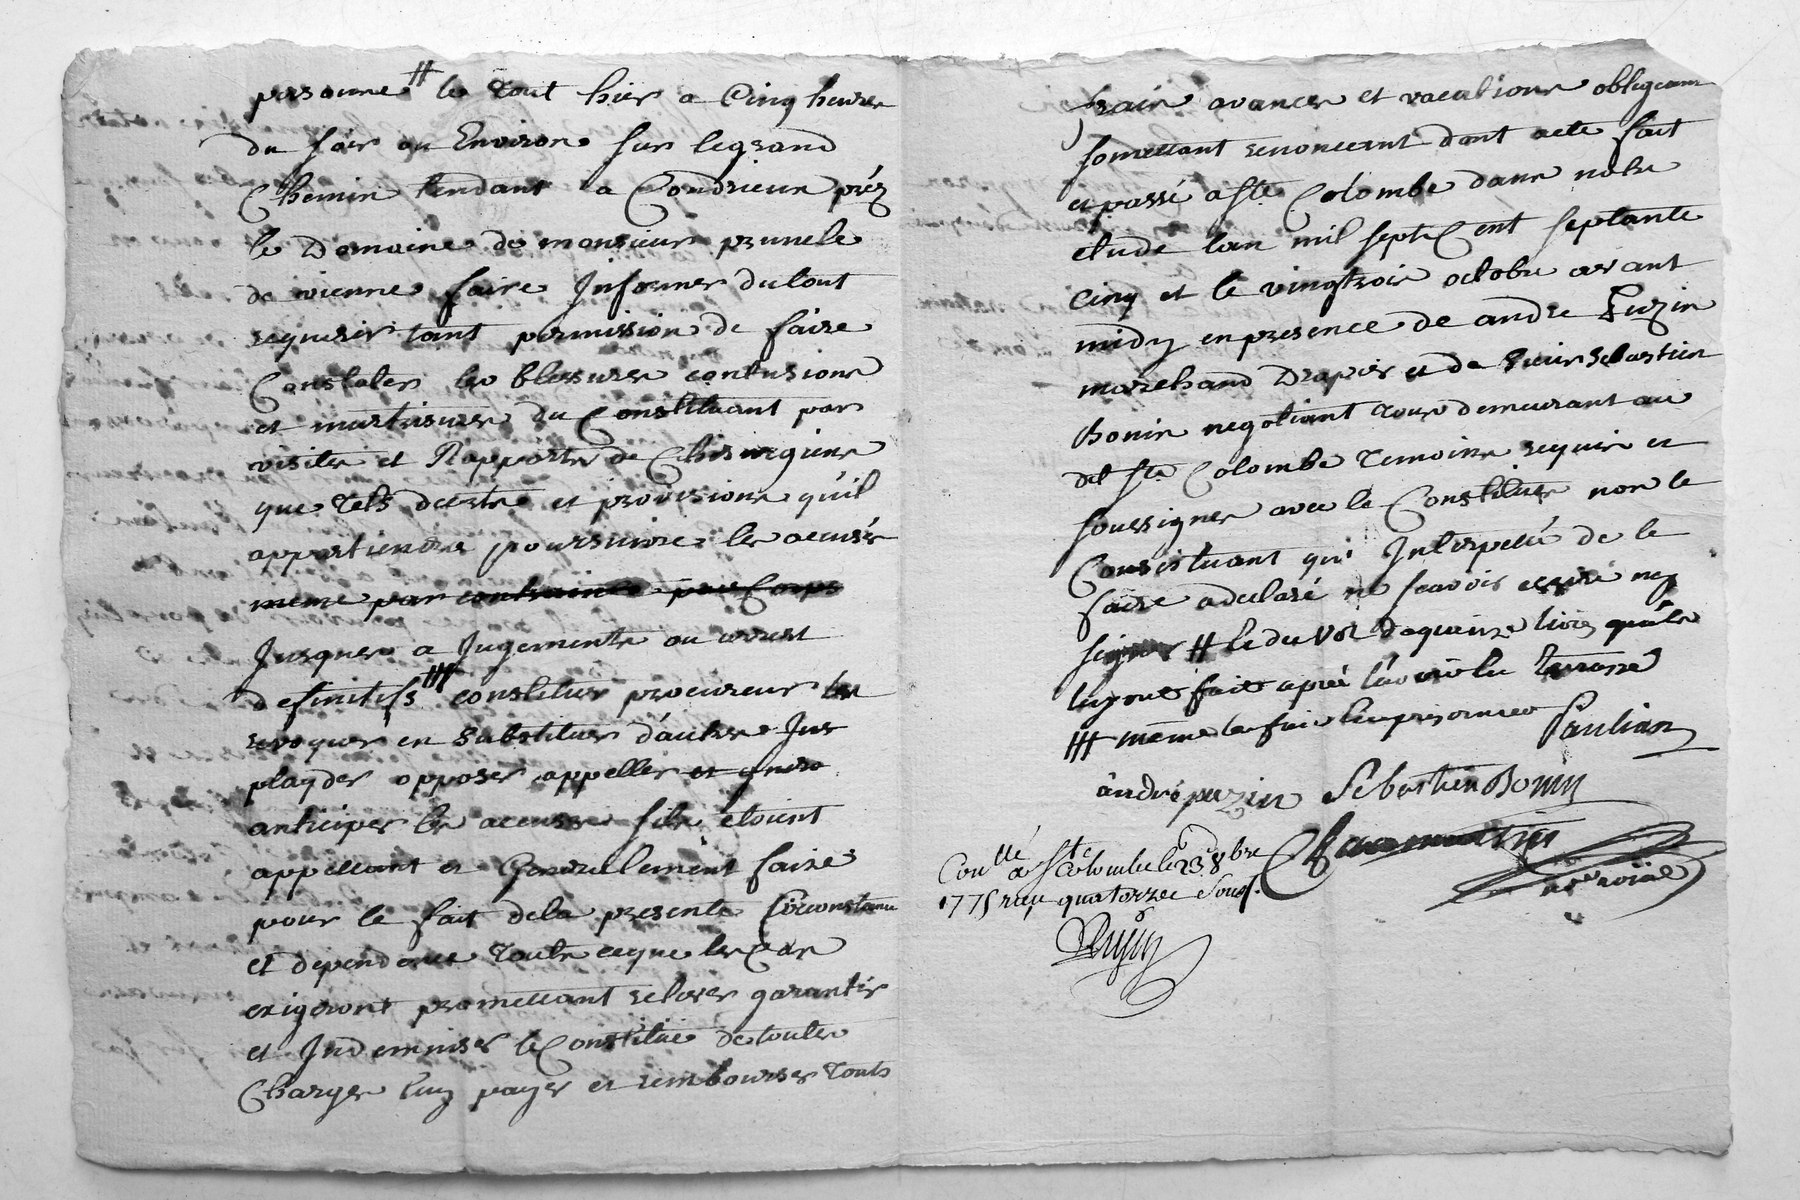 personne # le tout hier a Cinq heures
du soir ou Environ sur legrand
Chemin tendant a Condrieux préz
le Domaine de monsieur prunele
de vienne faire Informer dutout
requerir tant permission de faire
Constater les blessures contusions
et murtrisures du Constituant par
visite et Rapports de Chirurgiens
que tels decrets et provisions quil
appartiendra poursuivre les accusés
meme par contrainte par Corps
Jusques a Jugements ou arrest
definitifs ### constituer procureur les
revoquer en substituer d'autres Jus
playder opposer appeller et
anticiper les accusés sils etoient
appellant et Generallement faire
pour le fait dela presente Circonstance
et dependances toute ceque les Cas
exigeront promettant relever garantir
et Indemniser le Constitué detoutes
Charges luy payer et rembourser touts
frais avances et vacations obligeant
somettant renonceant dont acte fait
et passé a Ste Colombe dans notre
etude lan mil sept Cent septante
cinq et le vingtrois octobre avant
midy en presence de andre Puzin
marchand Drapier et de sieur Sebastien
Bonin negotiant tous demeurant au
dit Ste Colombe temoins requis et
sousignes avec le Constitué non le
Constituant qui Interpellé de le
faire adeclaré ne scavoir ecrire ny
signer # le du vol daquinze livres quils
luy ont fait aprés l'avoir
### meme les faire Emprisonner Paulian
andré puzin Sebastien Bonin
Conllé a Ste Colombe le 23 8bre
1775 reçu quatorze sous
nore roial